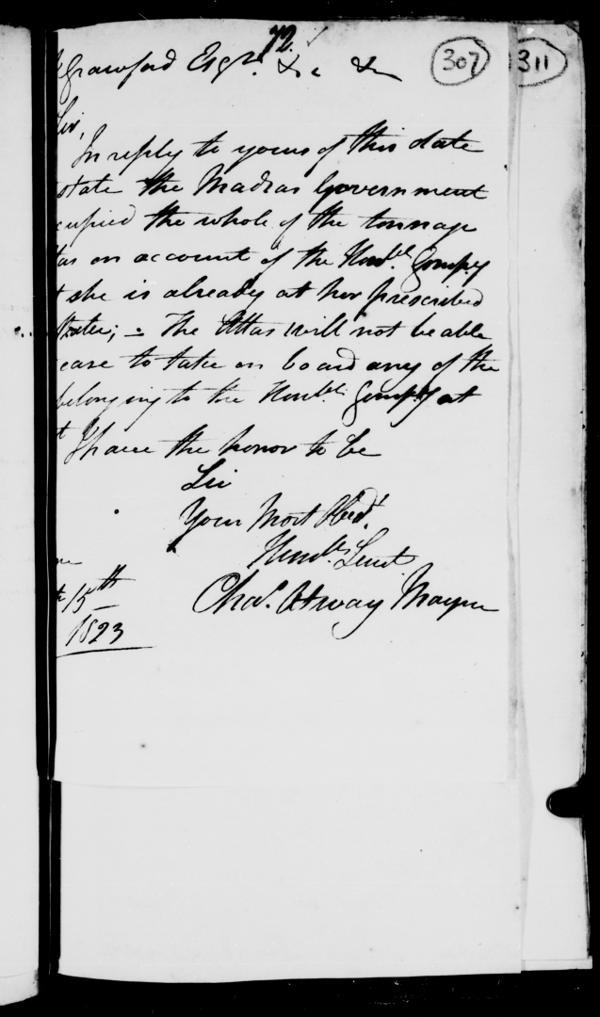 72
307 311
Crawfurd Esqr. &c &c
Sir,
In reply to yours of this date
state the Madras Government
cupied the whole of the tonnage
tas on account of the Honble. Compy
t she is already at her prescribed
The Attas will not be able
case to take on board any of the
belonging to the Honble. Compy at
t I have the honor to be
Sir
Your Most Obedt.
Humble Servt
Chas. Otway Mayne
15th
1823